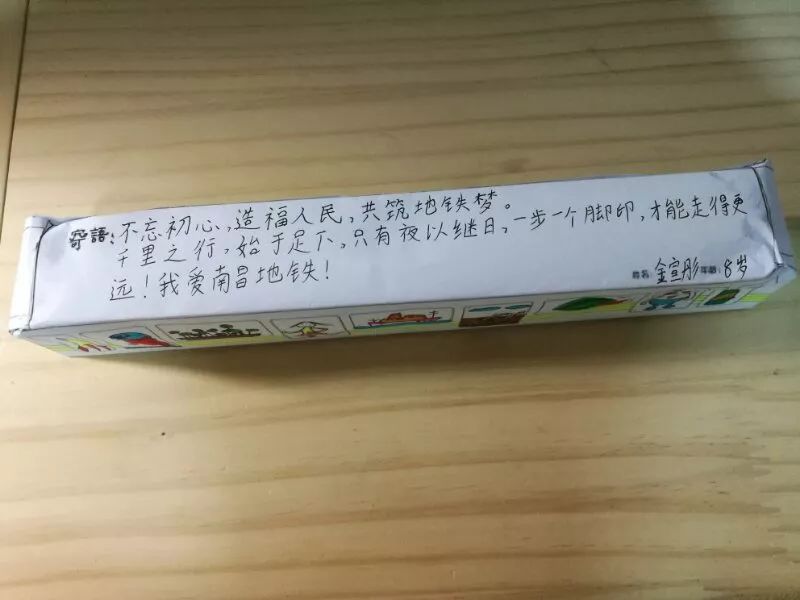 寄語:不忘初心,造福人民,共筑地铁梦。
千里之行,始于足下,只有夜以继日,一步一个脚印,才能走得更
远!我爱南昌地铁!
姓名:金宣彤 年龄:8岁